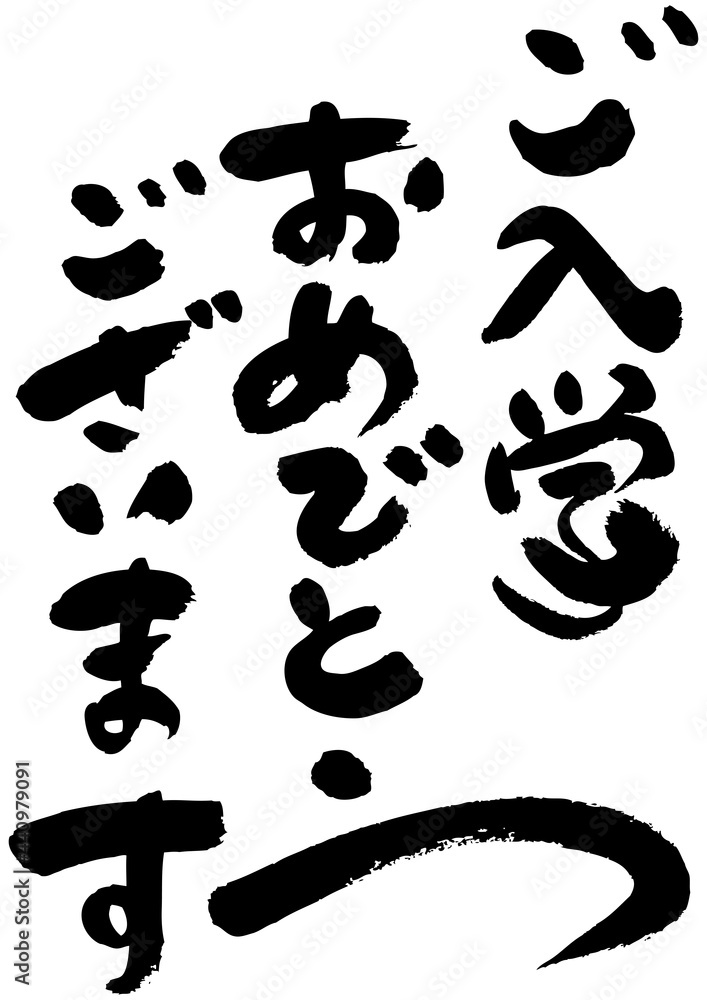 ご入学
おめでとう
ございます
Adobe Stock | #440979091